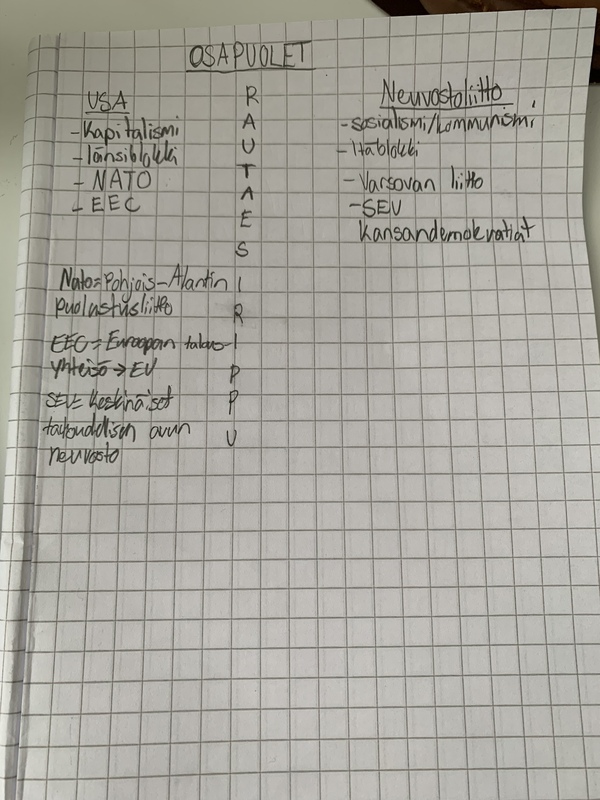 OSAPUOLET
USA
-Kapitalismi
-länsiblokki
- NATO
- EEC
RAUTAESIRIPPU
Neuvostoliitto
-sosialismi/kommunismi
-Itäblokki
-Varsovan liitto
-SEV
Kansandemokratiat
Nato=Pohjois-Atlantin
puolustusliitto
EEC=Euroopan talous-
yhteisö→EU
SEV= Keskinäisen
taloudellisen avun
neuvosto